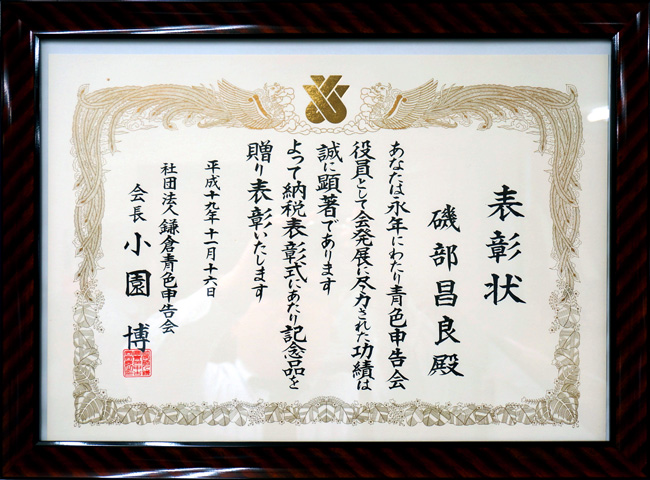 表彰状
磯部昌良殿
あなたは永年にわたり青色申告会
役員として会発展に尽力された功績は
誠に顕著であります
よって納税表彰式にあたり記念品を
贈り表彰いたします
平成十九年十一月十六日
社団法人鎌倉青色申告会
会長 小園 博